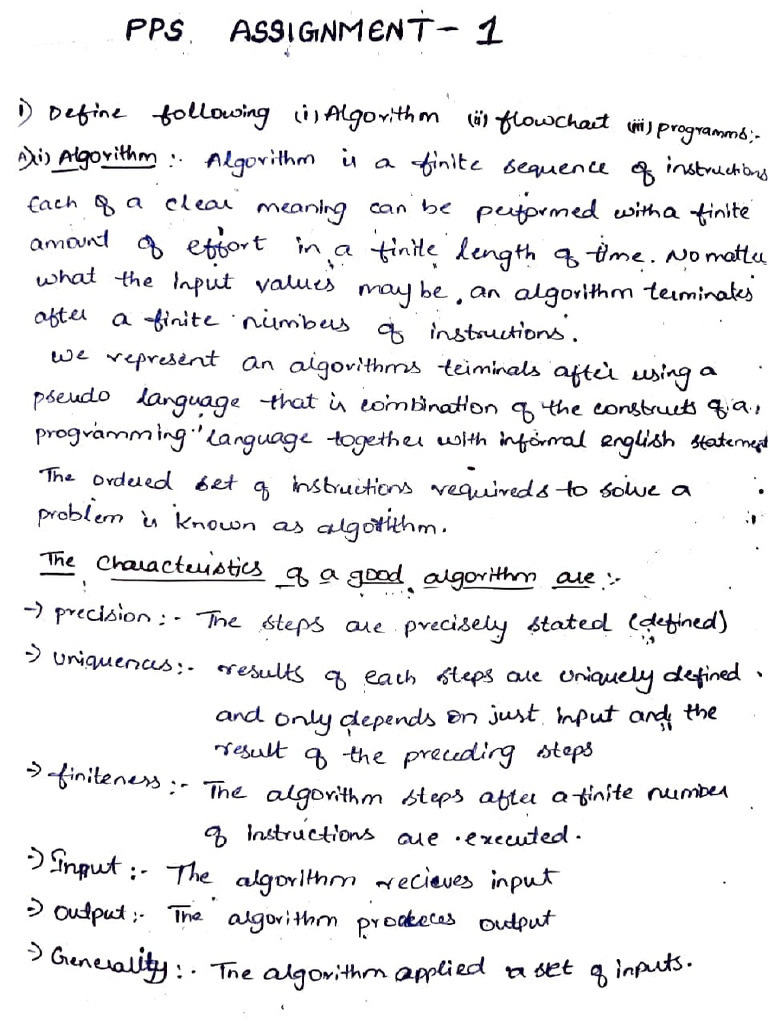 PPS ASSIGNMENT - 1
1) Define following (i) Algorithm (ii) flowchart (iii) programms:-
A) i) Algorithm :- Algorithm is a finite sequence of instructions
Each of a clear meaning can be performed with a finite
amount of effort in a finite length of time. No matter
what the input values may be, an algorithm terminates
after a finite numbers of instructions.
We represent an algorithms terminals after using a
pseudo language that is combination of the constructs of a
programming language together with informal english statement
The ordered set of instructions requireds to solve a
problem is known as algorithm.
The characteristics of a good algorithm are :-
-> precision :- The steps are precisely stated (defined)
-> uniqueness:- results of each steps are uniquely defined
and only depends on just input and the
result of the preceding steps
-> finiteness :- The algorithm steps after a finite number
of instructions are executed.
-> Input :- The algorithm recieves input
-> output :- The algorithm produces output
-> Generality :- The algorithm applied a set of inputs.